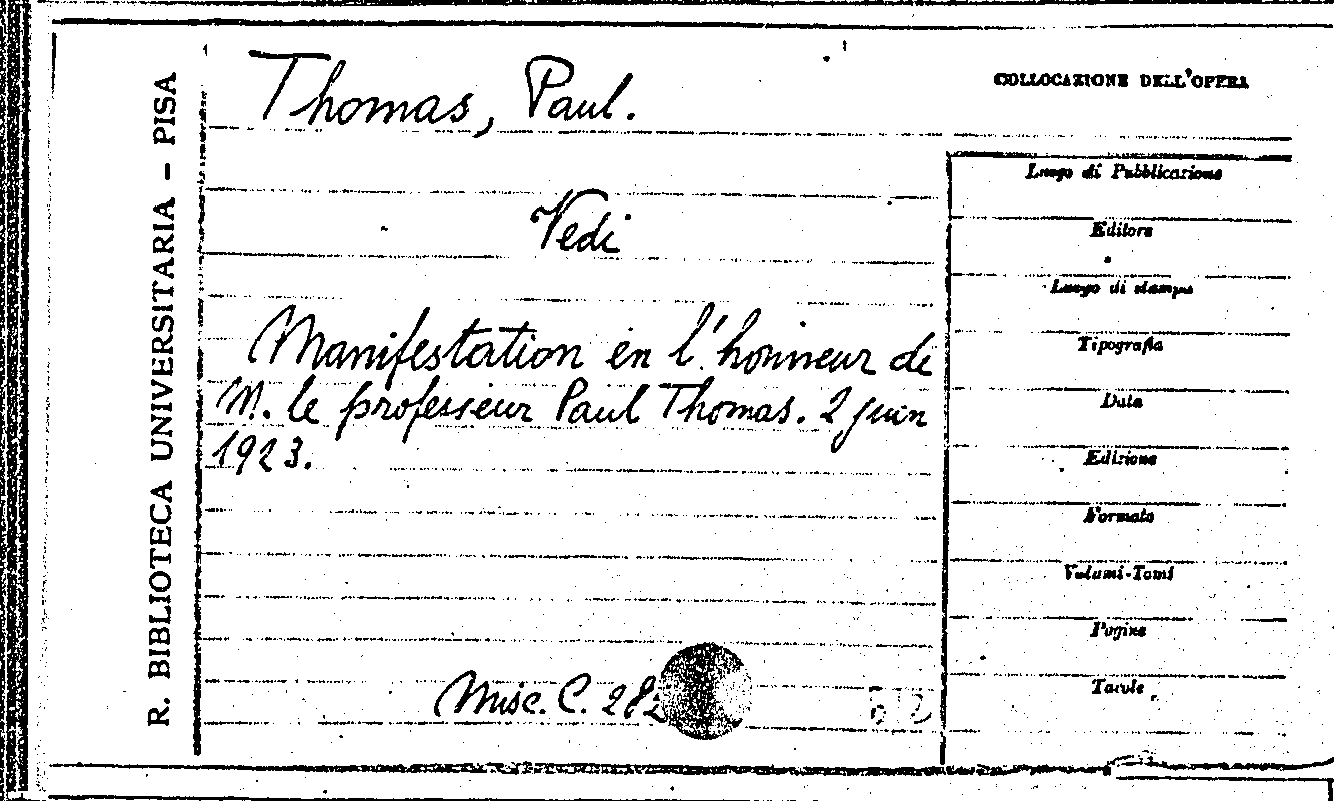 R. BIBLIOTECA UNIVERSITARIA – PISA
Thomas, Paul.
Vedi
Manifestation en l'honneur de
M. le professeur Paul Thomas. 2 juin
1923.
Misc. C. 282
COLLOCAZIONE DELL'OPERA
Luogo di Pubblicazione
Editore
Luogo di stampa
Tipografia
Data
Edizione
Formato
Volumi-Tomi
Pagine
Tavole